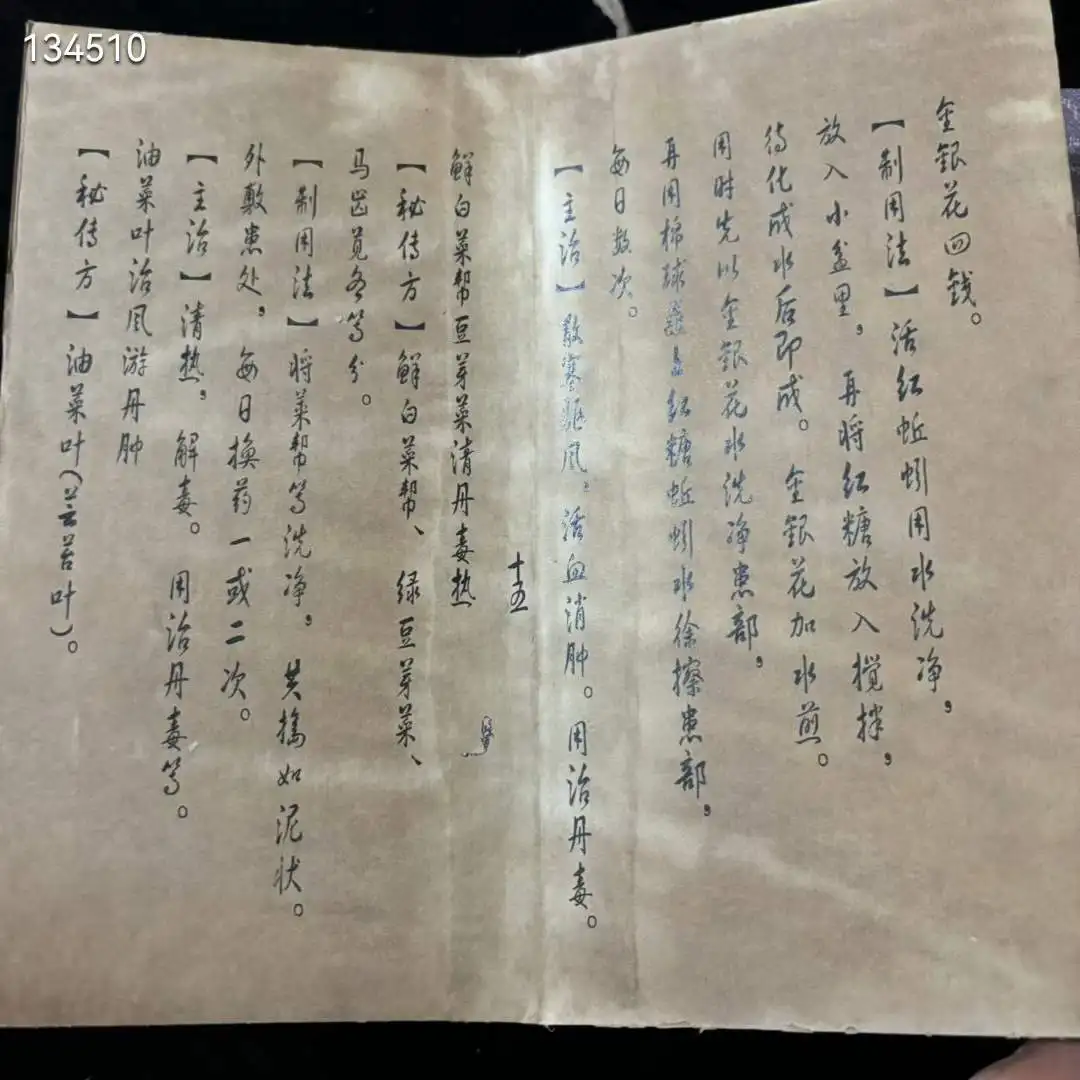 134510
金銀花四钱。
【制用法】活红蚯蚓用水洗净，
放入小盆里，再将红糖放入搅拌，
待化成水后即成。金銀花加水煎。
用时先以金銀花水洗净患部，
再用棉球红糖蚯蚓水徐擦患部，
每日数次。
【主治】散寒驱风、活血消肿。用治丹毒。
十五
鲜白菜帮豆芽菜清丹毒热
【秘传方】鲜白菜帮、绿豆芽菜、
马齿苋各等分。
【制用法】将菜帮等洗净，共捣如泥状。
外敷患处，每日换药一或二次。
【主治】清热，解毒。用治丹毒等。
油菜叶治风游丹肿
【秘传方】油菜叶（芸苔叶）。